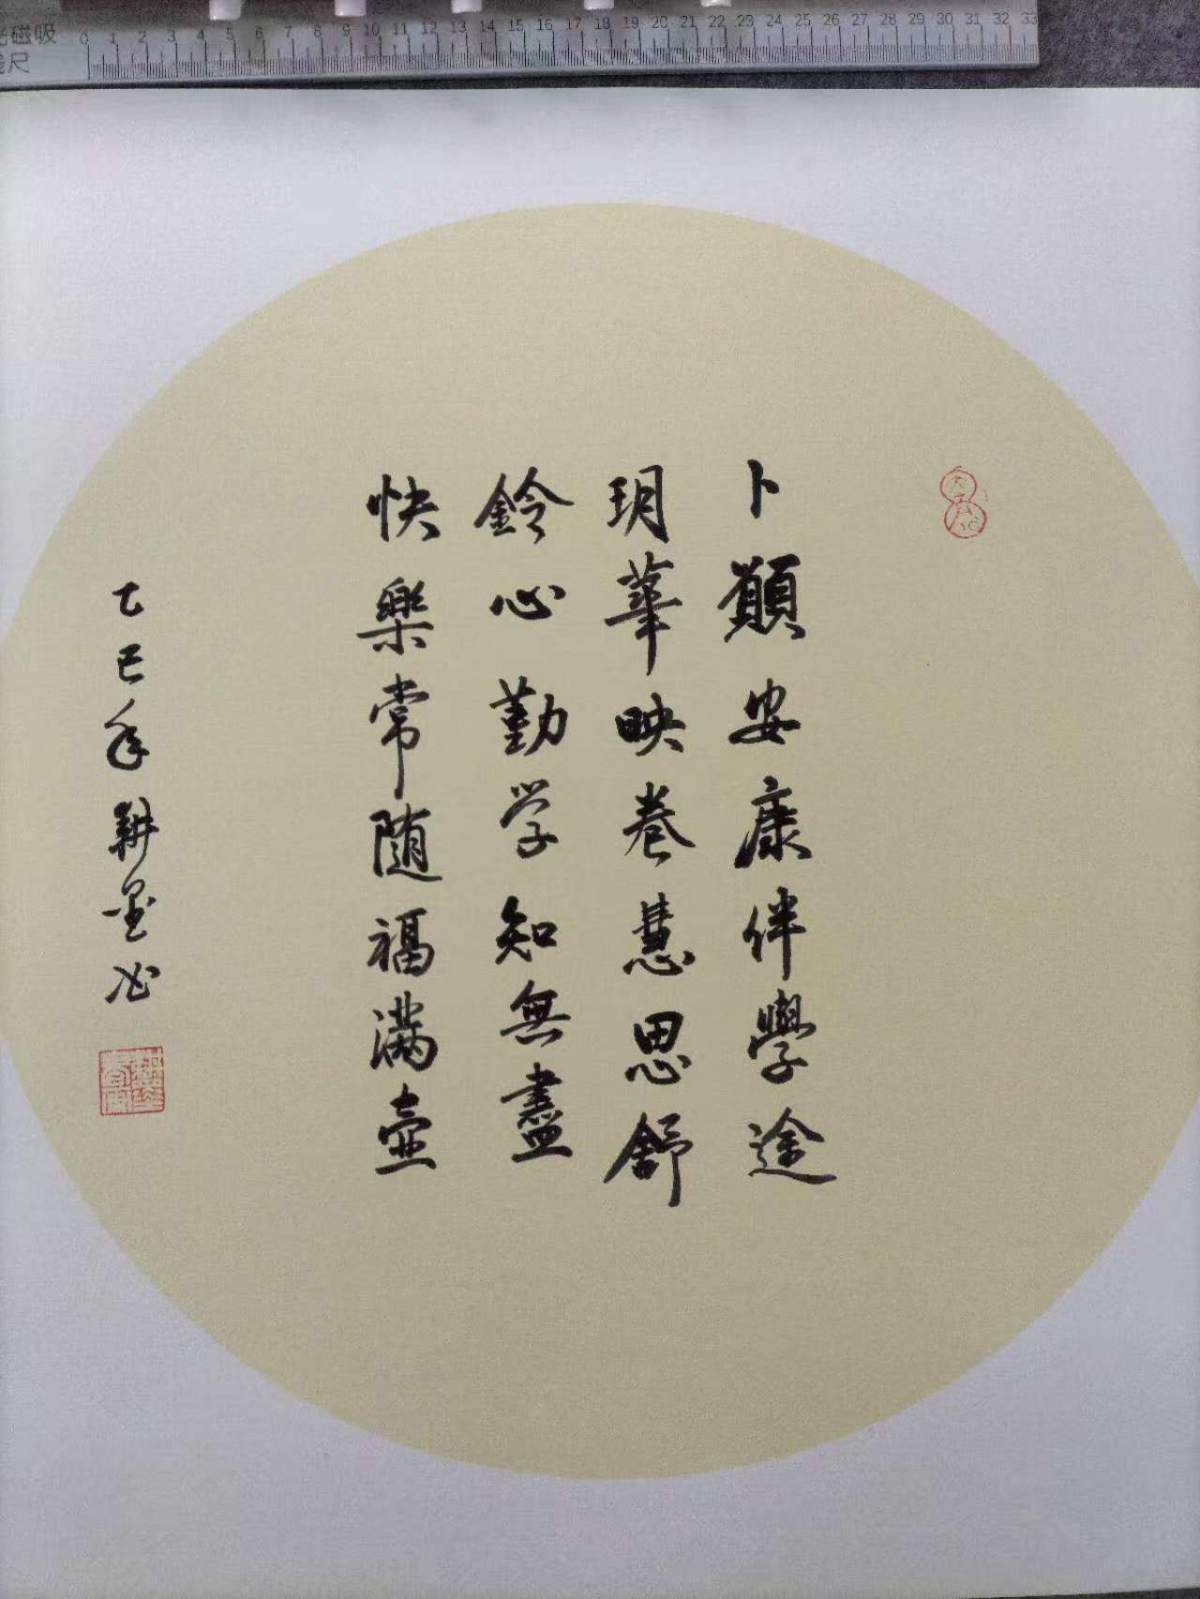 光磁吸
尺
0 1 2 3 4 5 6 7 8 9 10 11 12 13 14 15 16 17 18 19 20 21 22 23 24 25 26 27 28 29 30 31 32 33
卜願安康伴學途
玥華映卷慧思舒
鈴心勤学知無盡
快樂常随福满壺
乙巳年耕墨书